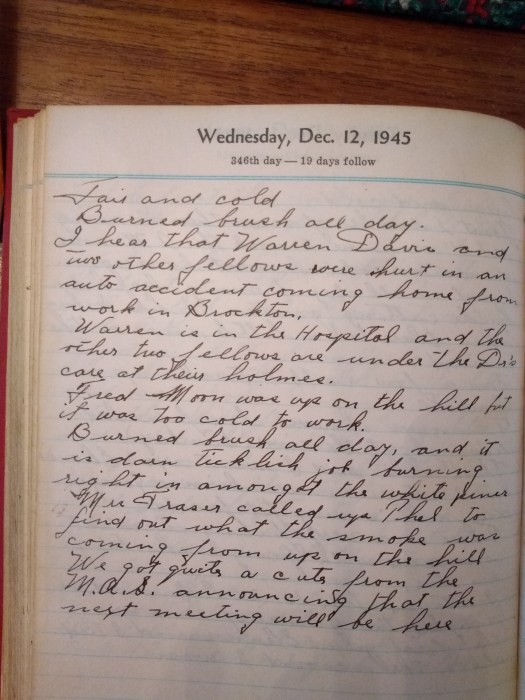 Wednesday, Dec. 12, 1945
346th day — 19 days follow
Fair and cold
Burned brush all day.
I hear that Warren Davis and
two other fellows were hurt in an
auto accident coming home from
work in Brockton.
Warren is in the Hospital and the
other two fellows are under the Dr's
care at their holmes.
Fred Moon was up on the hill but
it was too cold to work.
Burned brush all day, and it
is darn ticklish job burning
right in amongst the white pines
Mrs Fraser called up Phel to
find out what the smoke was
coming from up on the hill
We got quite a cute from the
M.A.S. announcing that the
next meeting will be here